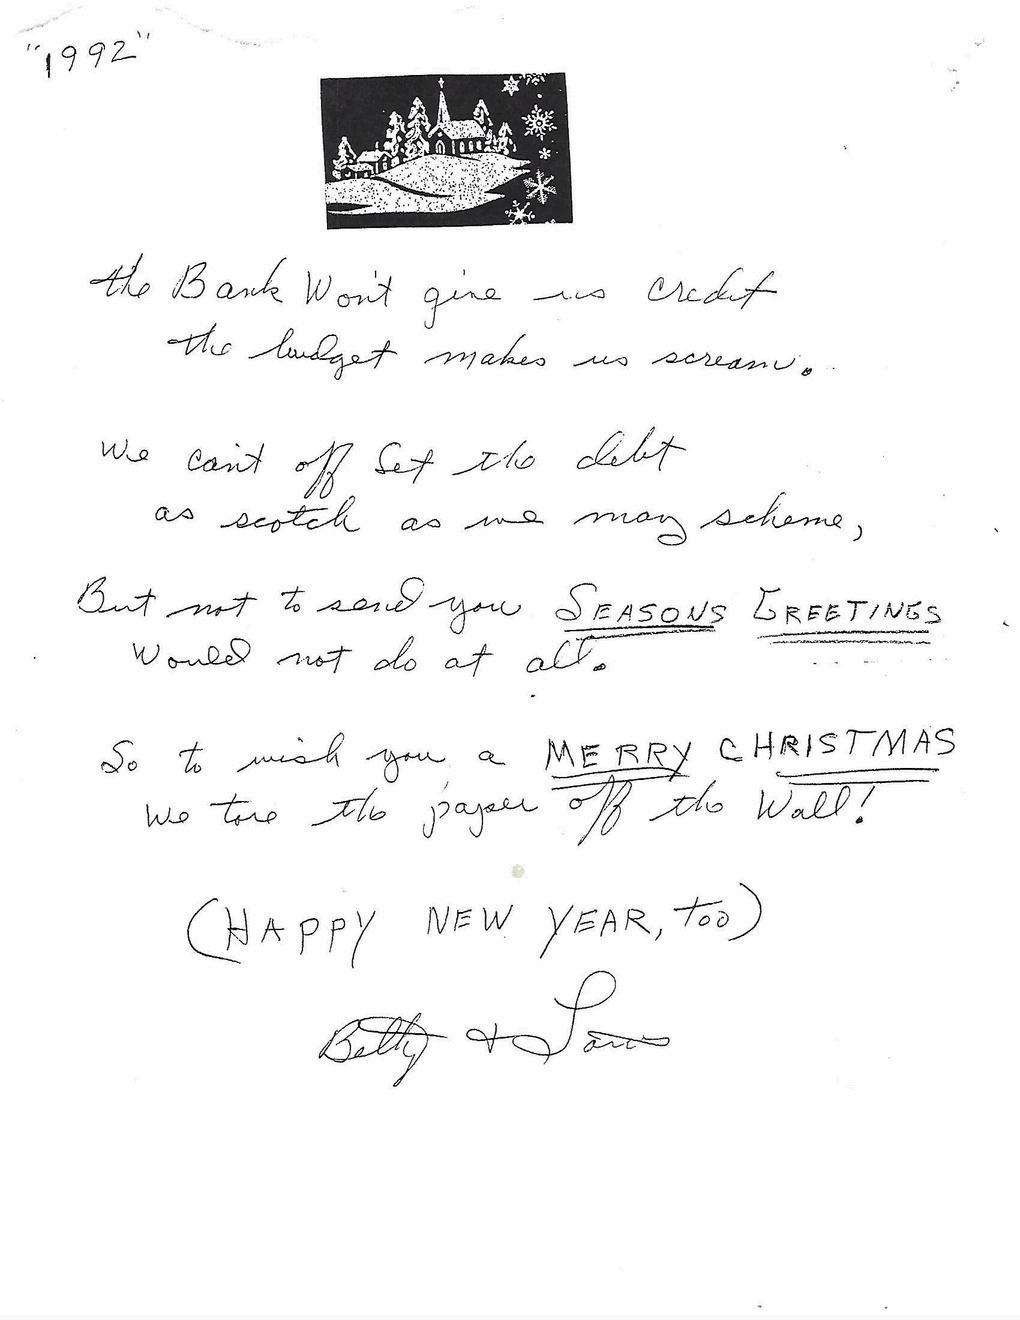 "1992"
the Bank Won't give us credit
the budget makes us scream.
We can't off set the debt
as scotch as we may scheme,
But not to send you SEASONS GREETINGS
Would not do at all.
So to wish you a MERRY CHRISTMAS
We tore the paper off the Wall!
(HAPPY NEW YEAR, too)
Betty &